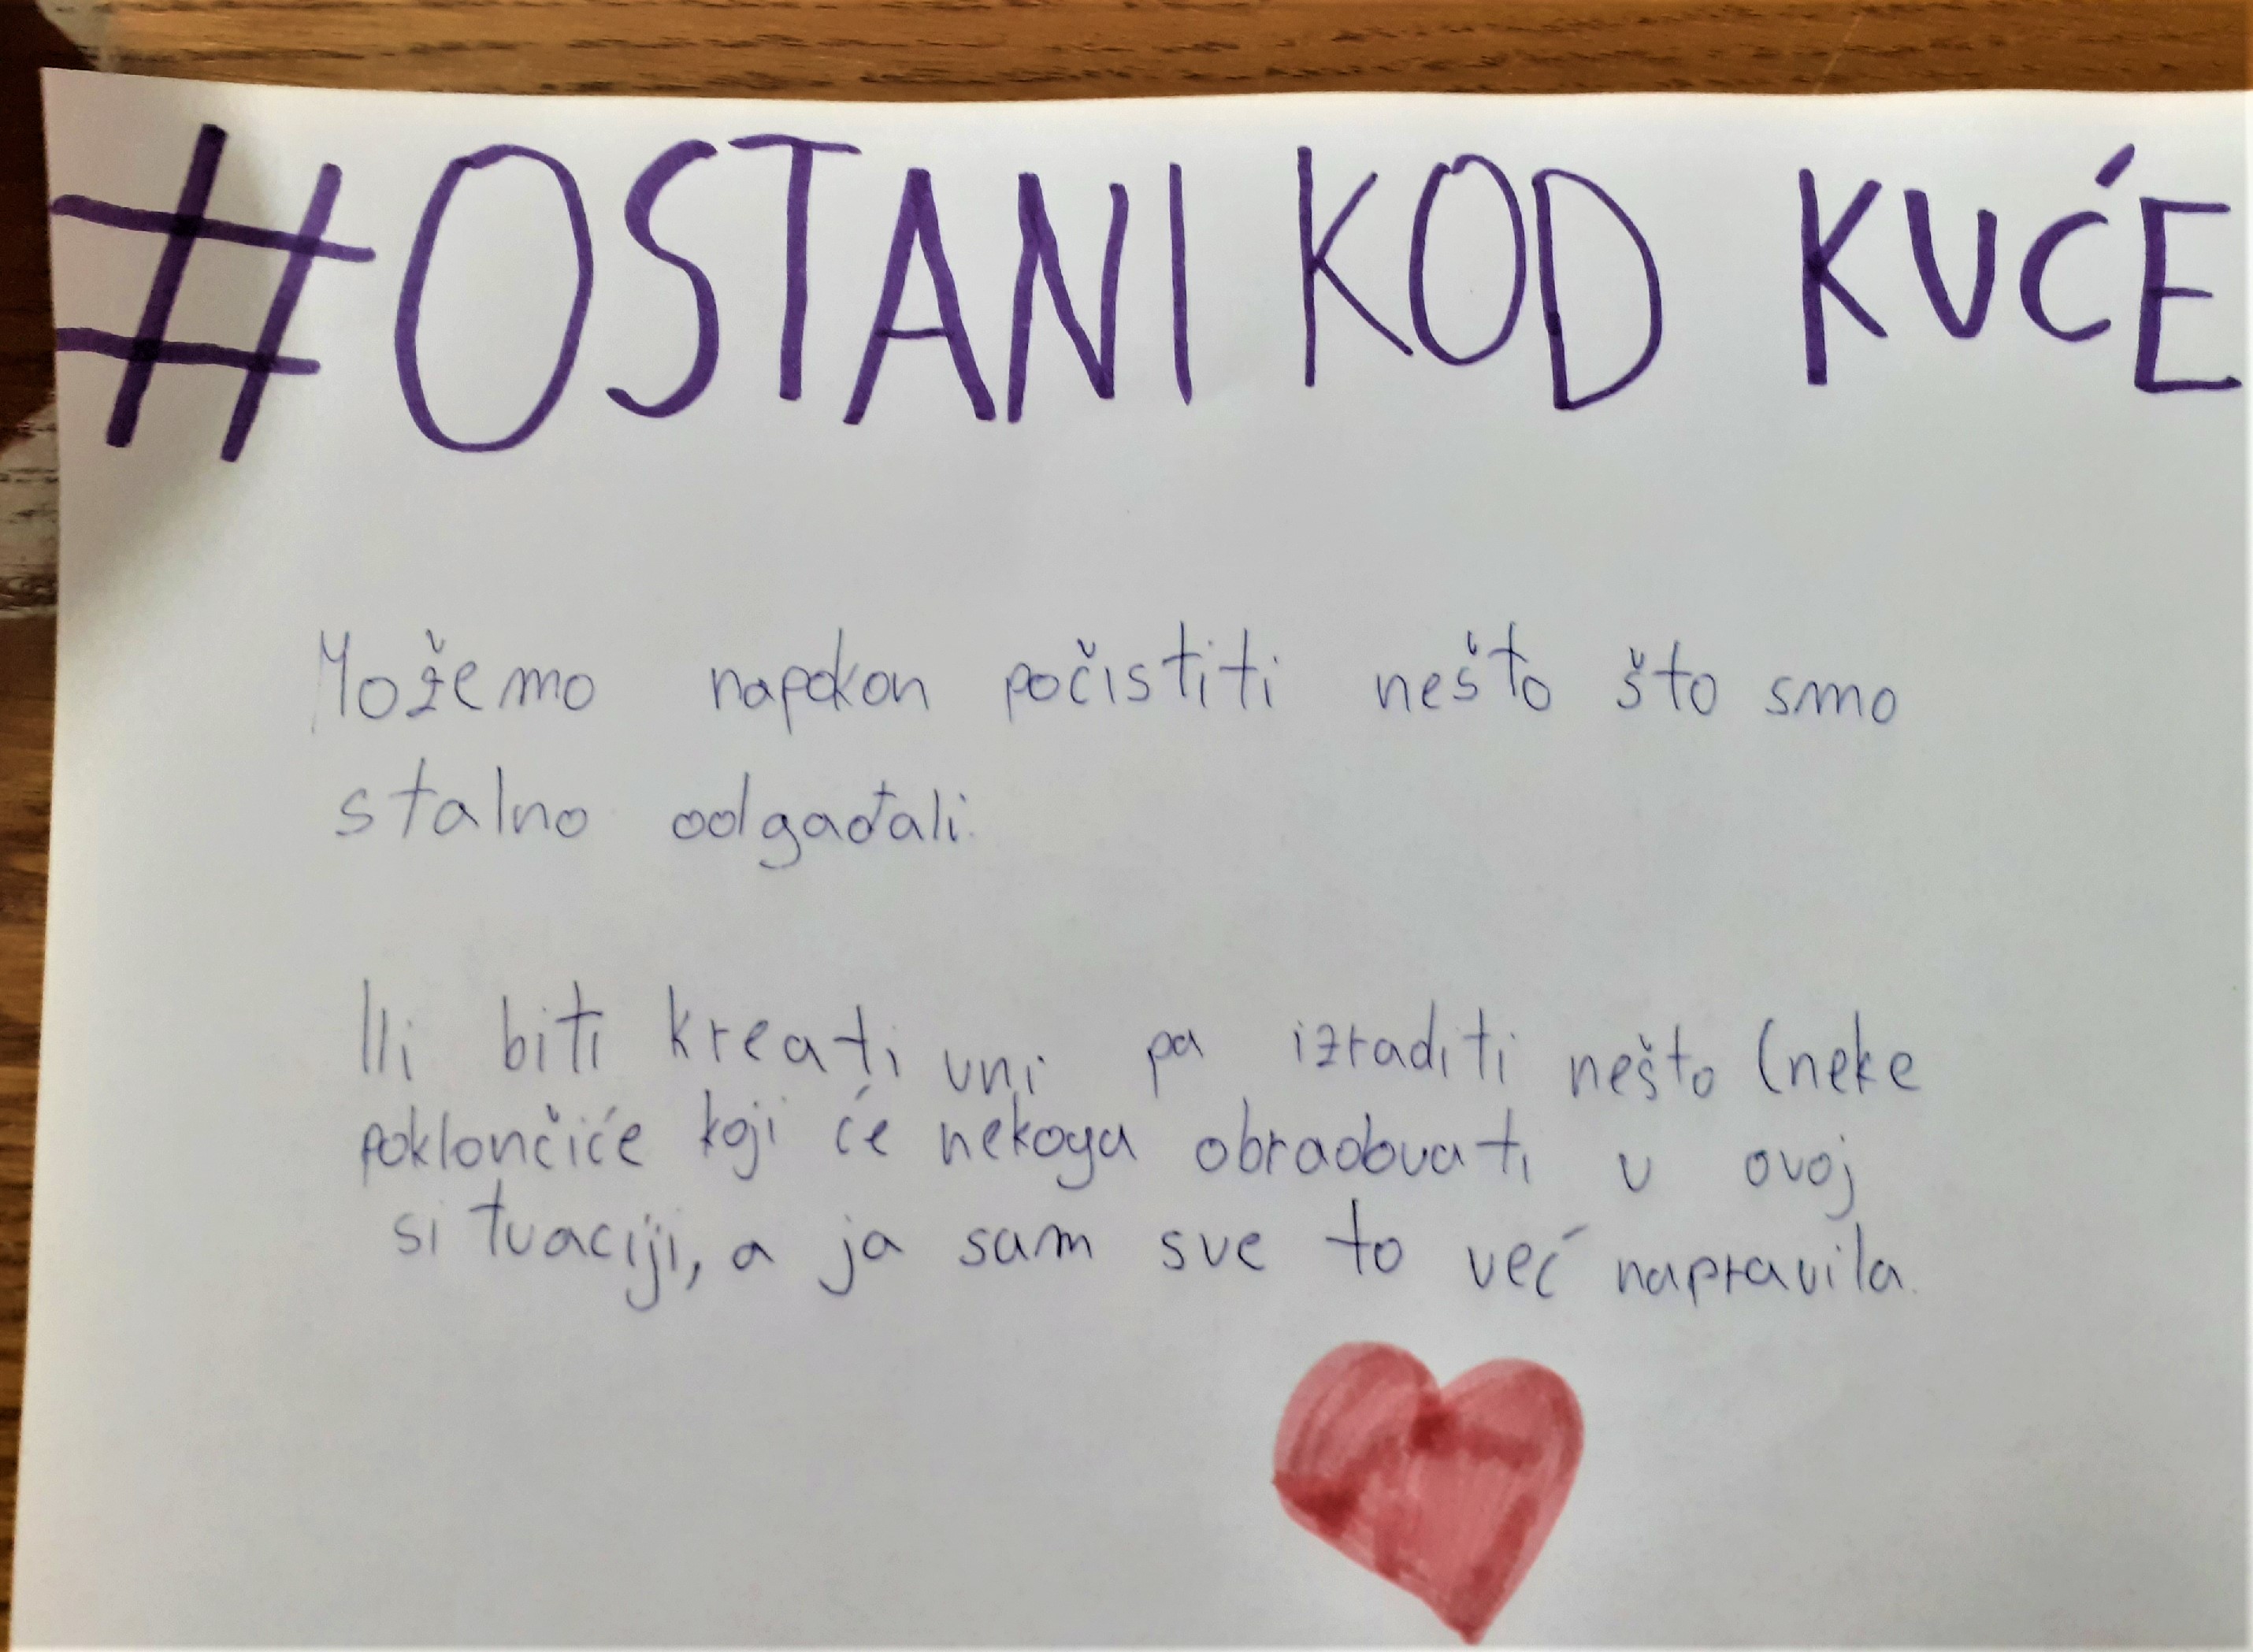 #OSTANI KOD KUĆE
Možemo napokon počistiti nešto što smo
stalno odgađali.
Ili biti kreativni pa izraditi nešto (neke
poklončiće koji će nekoga obradovati u ovoj
situaciji, a ja sam sve to već napravila.